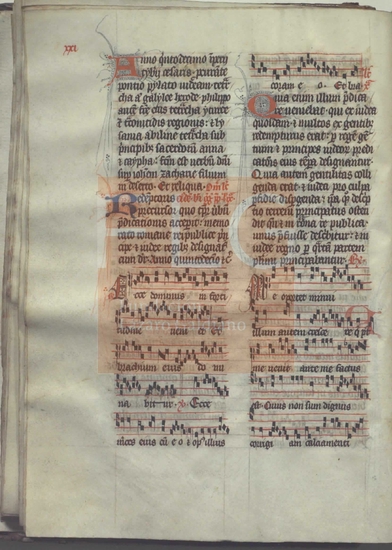 xxi
Anno quitodecimo imperij
tyberij cesaris. procurante
pontio pylato iudeam. tetrar
cha aut galylee herode. philippo
aut fratre eius tetrarcha yturee
et traconitidis regionis. et ly
sania abiline tetrarcha sub
principibus sacerdotum anna
et caypha: factum est verbum domini
super iohannem zacharie filium
in deserto. Et reliqua.
Redemptoris
precursor quo tempore verbum
predicationis accepit: memo
rato romane rei publice prin
cipe et iudee regibus designatur
cum dicitur. Anno quintodecimo
Ecce dominus in forti
tudine veniet et br
brachium eius do mi
na bitur. V. Ecce
merces eius cum e o et opus illius
coram e o. Et bra
Quia enim illum predica
re veniebat qui ex iudea
quosdam et multos ex gentibus
redempturus erat: per regem gen
tium et principes iudeorum predi
cationis eius tempora designantur.
Quia autem gentilitas colli
genda erat: et iudea pro culpa
perfidie dispergenda
terreni principatus osten
dit
iudee regno per quartam partem
plurimi principabantur.
Me oportet minui
illum autem cresce re qui p
me venit ante me factus
est. Cuius non sum dignus
corrigi am calciamenti